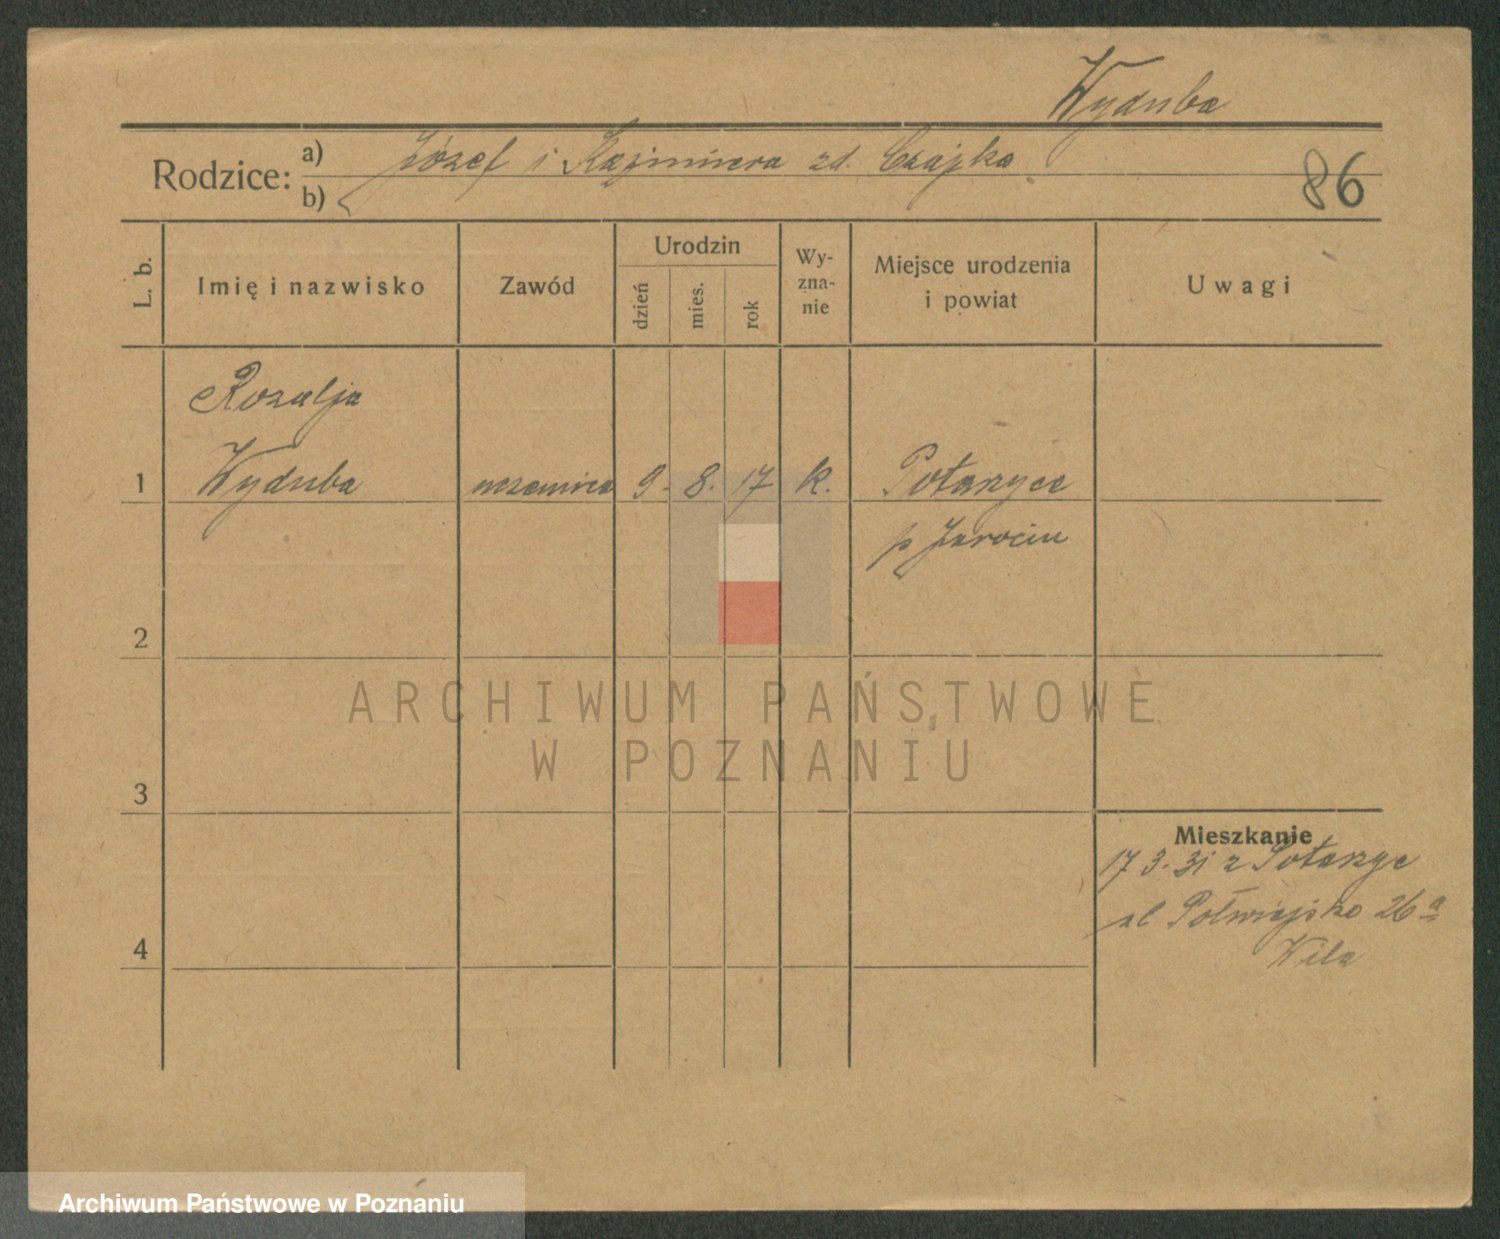 Wyduba
Rodzice: a) Józef i Kazimiera zd. Czajka
b)
86
L. b.
Imię i nazwisko
Zawód
Urodzin
dzień
mies.
rok
Wy-
zna-
nie
Miejsce urodzenia
i powiat
Uwagi
Rozalja
1 Wyduba uczennica 9. 8. 17 k. Potarzyce
p Jarocin
2
ARCHIWUM PAŃSTWOWE
W POZNANIU
3
Mieszkanie
17 3. 31 z Potarzyc
ul Półwiejska 26 a
4
Archiwum Państwowe w Poznaniu